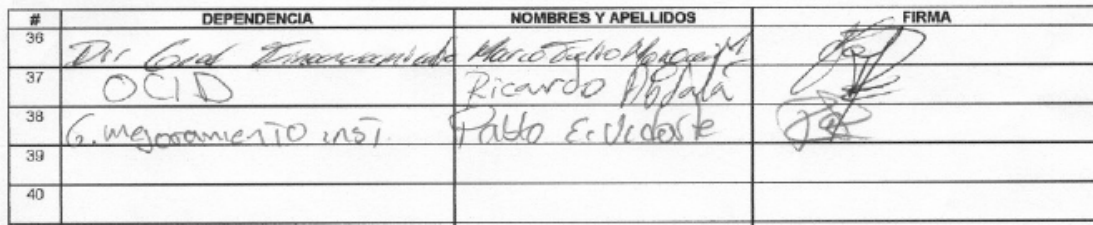 # DEPENDENCIA NOMBRES Y APELLIDOS FIRMA
36 Dir Gral Financiamiento Marco Tulio
37 OCID Ricardo
38 G. mejoramiento inst. Pablo E.
39
40